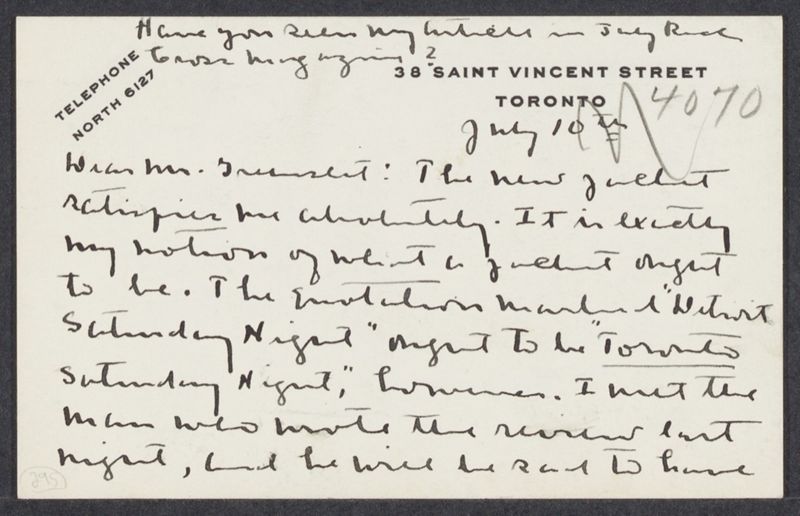 Have you seen my article in July Red
Cross Magazine?
TELEPHONE
NORTH 6127
38 SAINT VINCENT STREET
TORONTO
4070
July 10th
Dear Mr. Greenslet: The new jacket
satisfies me absolutely. It is exactly
my notion of what a jacket ought
to be. The quotation marked "Detroit
Saturday Night" ought to be "Toronto
Saturday Night," however. I met the
man who wrote the review last
night, and he will be sad to have
295